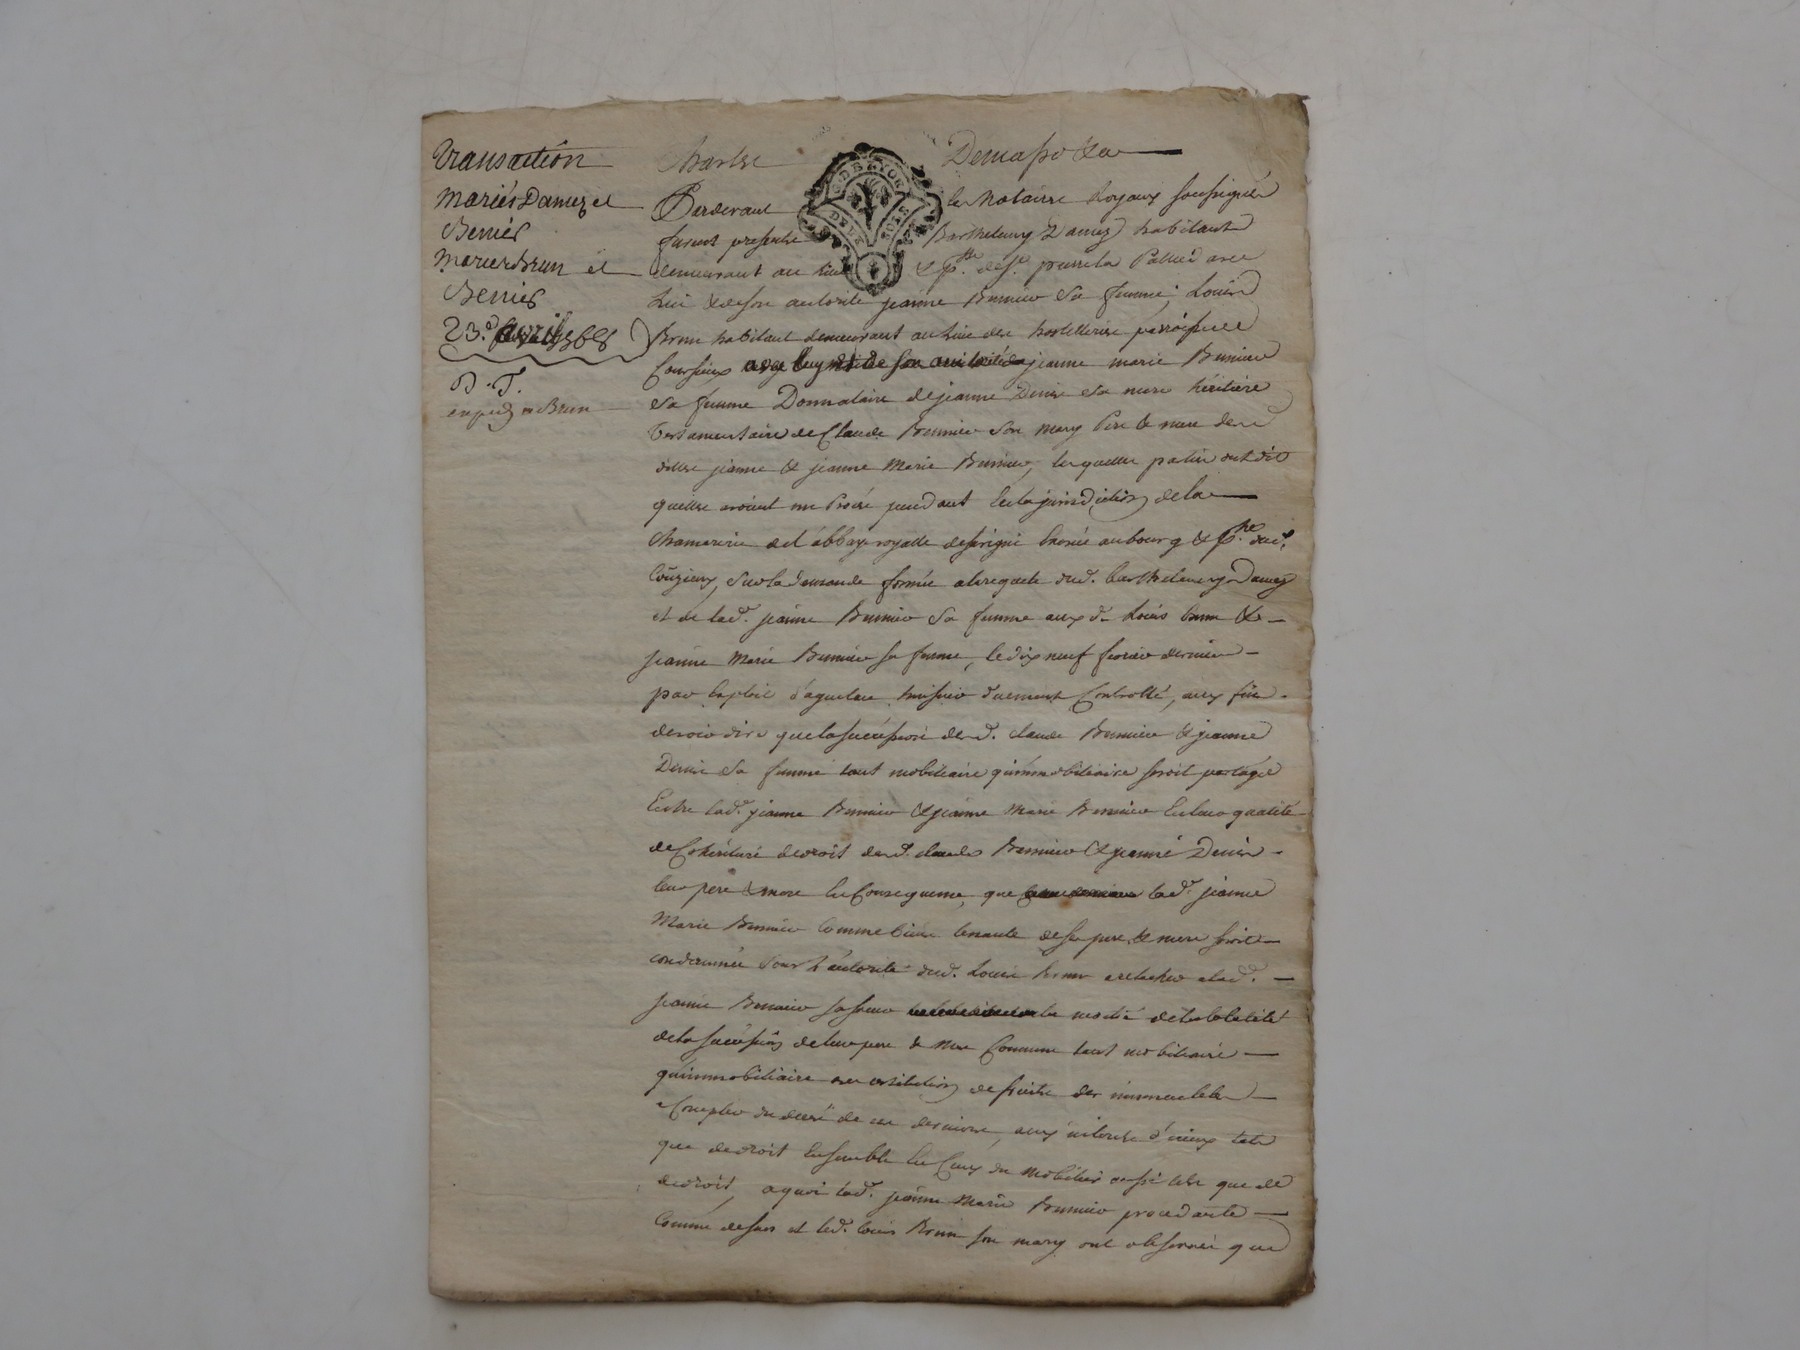 Transaction
Mariés Damez et
Benier
Mariés Brun et
Benier
23.e avril 1768
D. T.
exped. m Brun
G. DE LYON
DEUX SOLS
Pardevant les Notaires Royaux soussignés
furent presents Barthelemy Damez habitant
demeurant au lieu & p.sse de St. pierre la Palud avec
lui & de son autorité jeanne Bunier sa femme, Louis
Brun habitant demeurant au lieu des hostelleries parroisse
Coursieux avec luy et de son autorité jeanne marie Bunier
sa femme Donnataire de jeanne Denis sa mere héritière
testamentaire de Claude Bunier son mary Pere & mere des
dittes jeanne & jeanne Marie Bunier, lesquelles parties ont dit
quelles avoient un Procés pendant en la jurisdiction de la
Chamarerie de l'abbaye royalle de savigni exercée au bourg & p.sse dud.
Couzieux, sur la demande formée a la requete dud. barthelemy Damez
et de lad. jeanne Bunier sa femme aux d. Louis brun &
jeanne Marie Bunier sa femme, le dix neuf fevrier dernier
par exploit d'aguetau huissier duement Controllé, aux fins
de voir dire que la succession desd. claude Bunier & jeanne
Denis sa femme tant mobiliaire qu'immobiliaire seroit partagée
Entre lad. jeanne Bunier & jeanne Marie Bunier en leur qualité
de Cohéritieres de droit desd. claude Bunier & jeanne Denis
leur pere & mere en Consequence, que lad. jeanne
Marie Bunier comme biens tenante de ses pere & mere seroit
condamnée sous l'autorité dud. Louis brun a relacher a lad.
jeanne Bunier sa soeur la moitié de la totalité
de la succession de leur pere & mere Commune tant mobiliaire
qu'immobiliaire avec restitution de fruits des immeubles
a Compter du decés de ces derniers, aux interets d'iceux tels
que de droit Ensemble en Ceux du mobilier aussi tels que de
droit, a quoi lad. jeanne Marie Bunier procedante
Comme dessus et led. Louis Brun son mary ont observé que